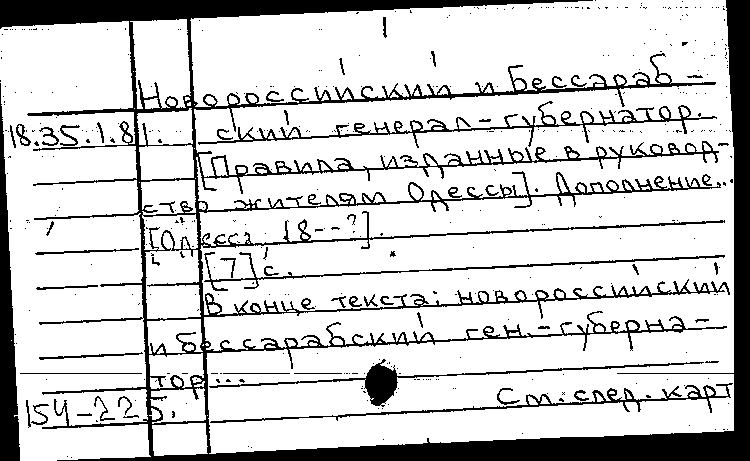 Новороссийский и бессараб-
18.35.1.81. ский генерал-губернатор.
[Правила, изданные в руковод-
ство жителям Одессы]. Дополнение...
[Одесса, 18--?].
[7] с.
В конце текста: новороссийский
и бессарабский ген.-губерна-
тор...
154-225. См. след. карт